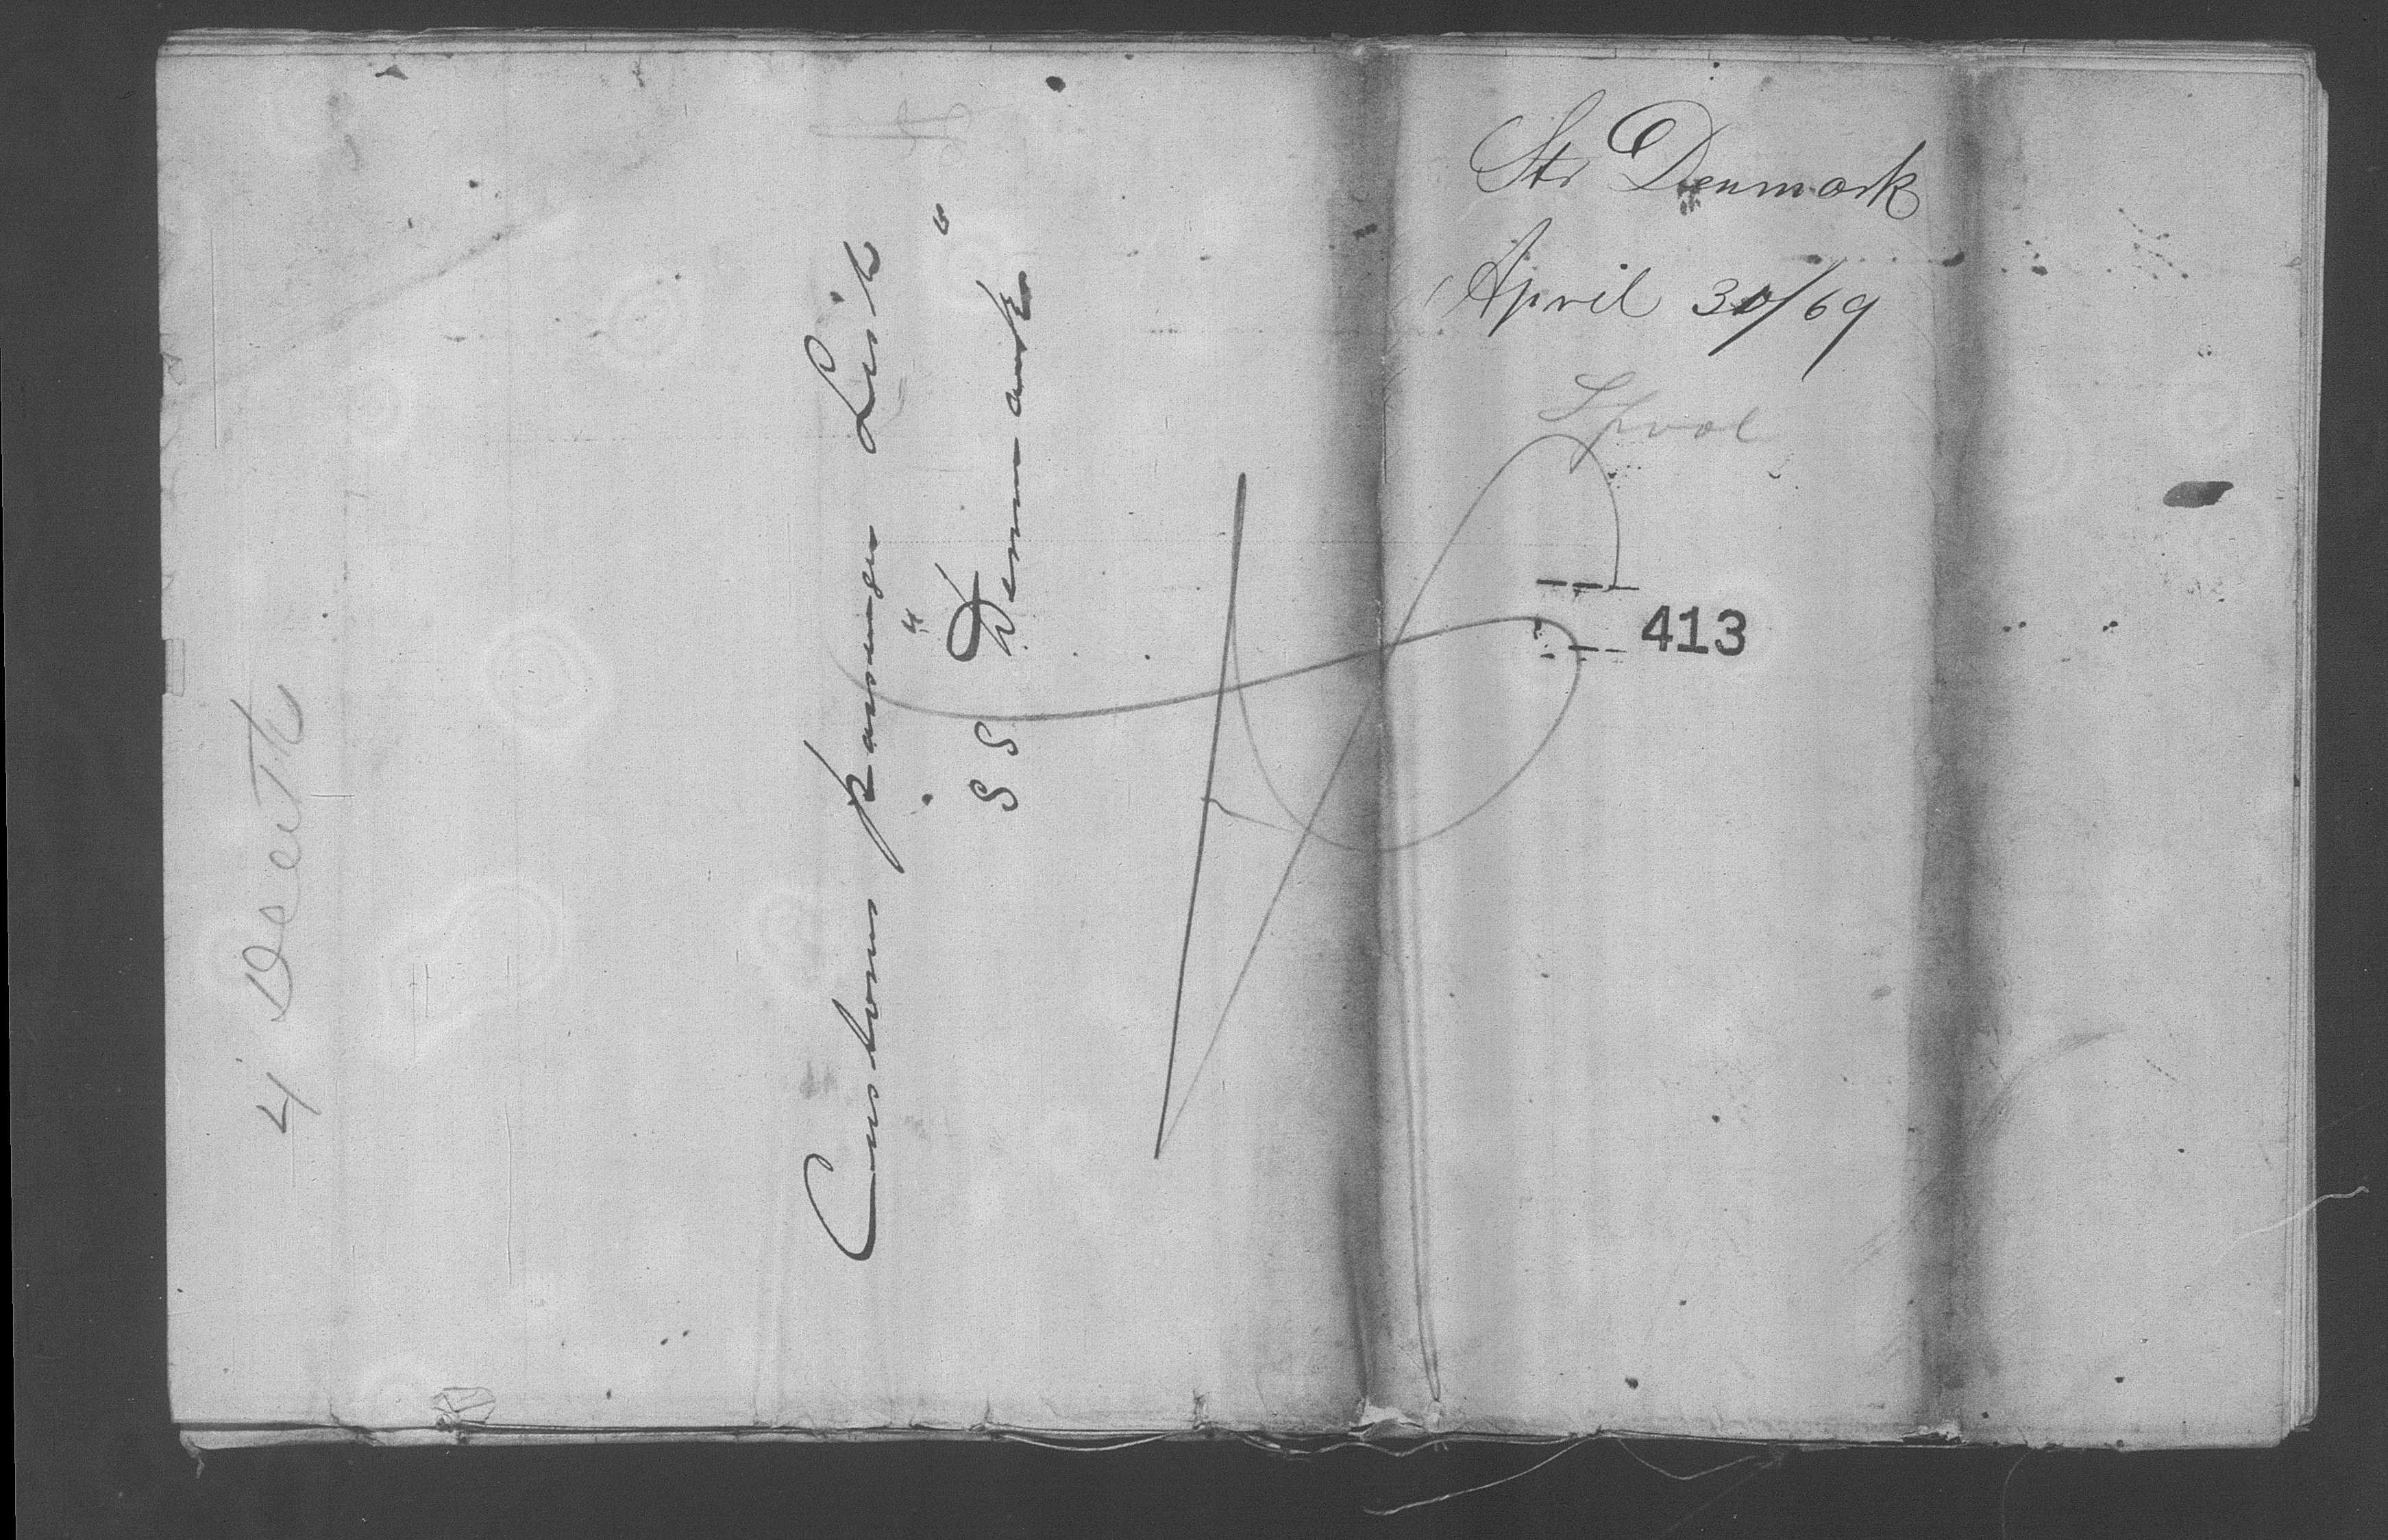 Str Denmark
April 30/69
Lpool
413
Customs passenger List
"
SS Denmark "
4 Death